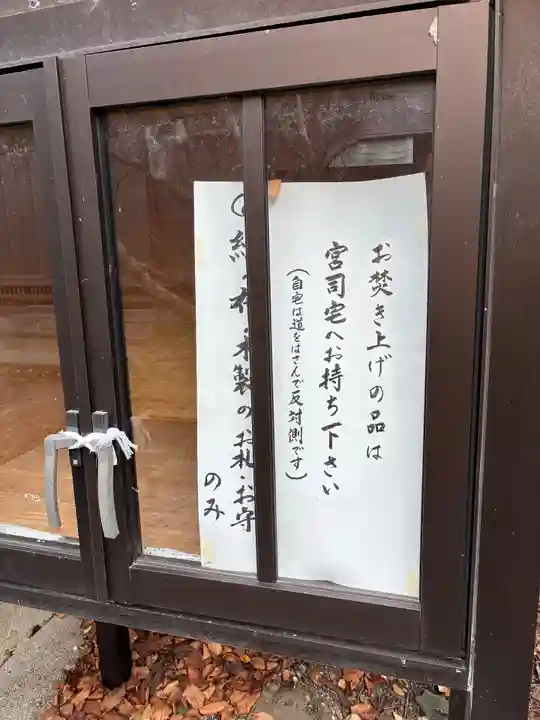 お焚き上げの品は
宮司宅へお持ち下さい
(自宅は道をはさんで反対側です)
○紙・布・木製のお札・お守
のみ